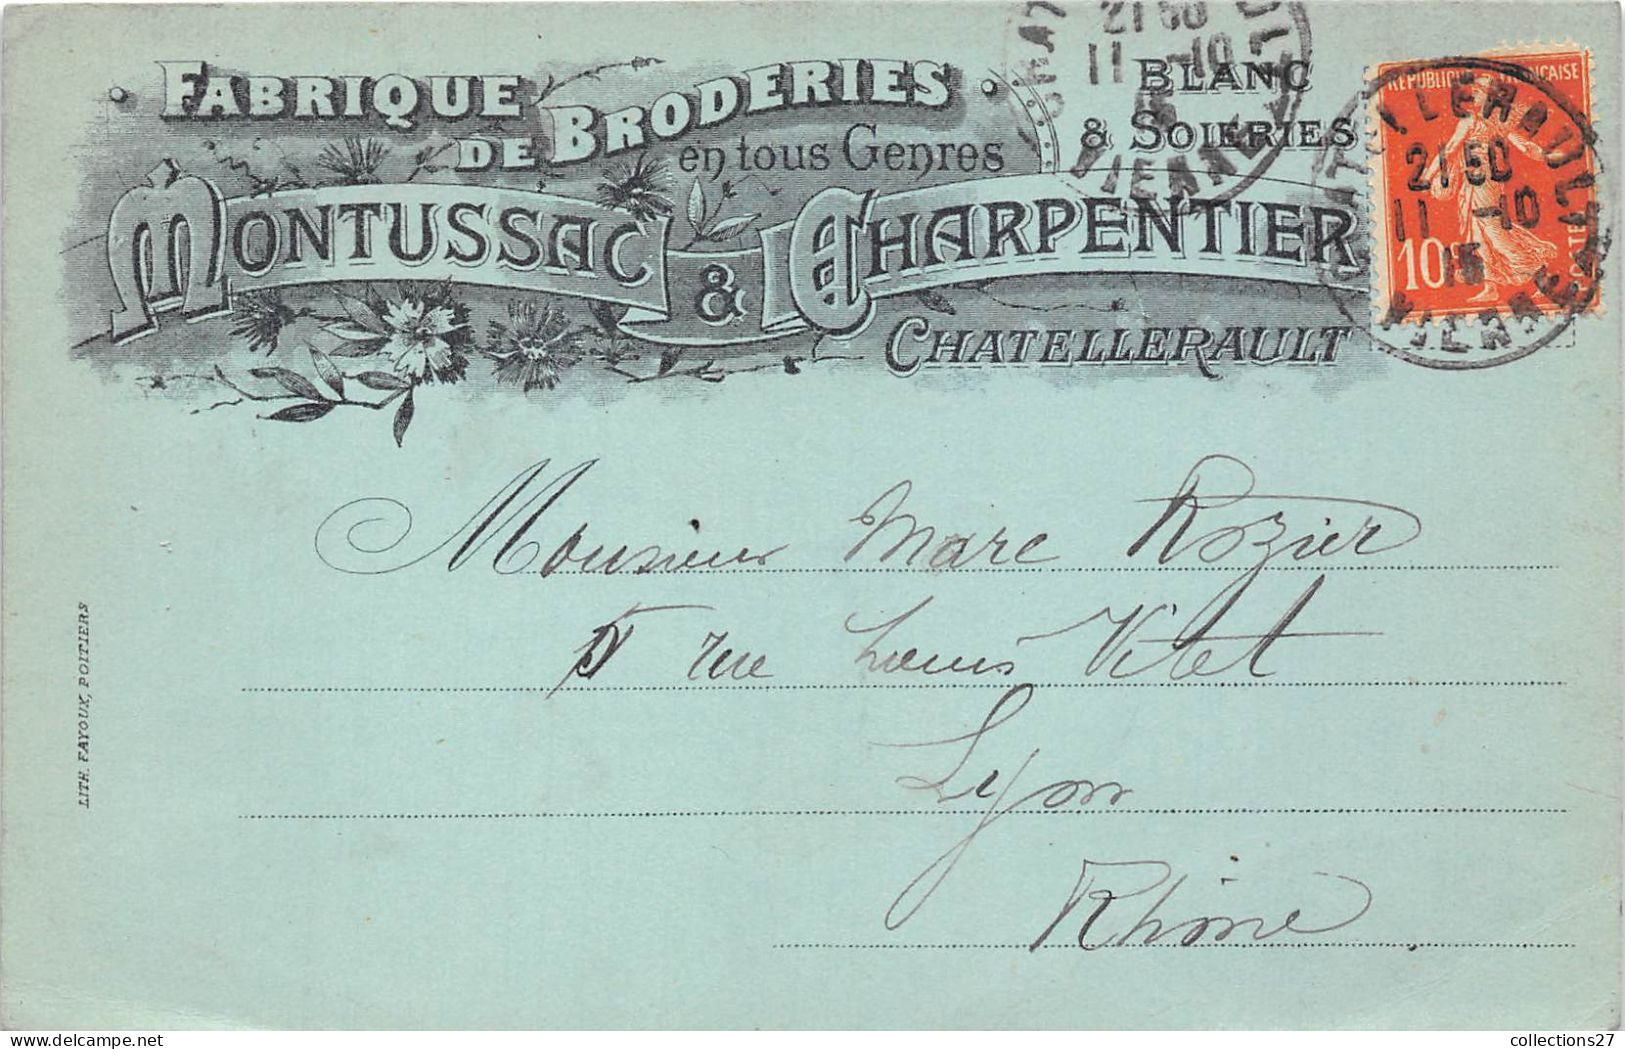 FABRIQUE
DE BRODERIES
en tous Genres
BLANC
& SOIERIES
MONTUSSAC & CHARPENTIER
CHATELLERAULT
REPUBLIQUE FRANÇAISE
10
CHATELLERAULT
21 50
11 -10
15
VIENNE
21 50
11 -10
15
VIENNE
Monsieur Marc Rozier
5 rue Louis Vitet
Lyon
Rhône
LITH. FAYOUX, POITIERS
collections27